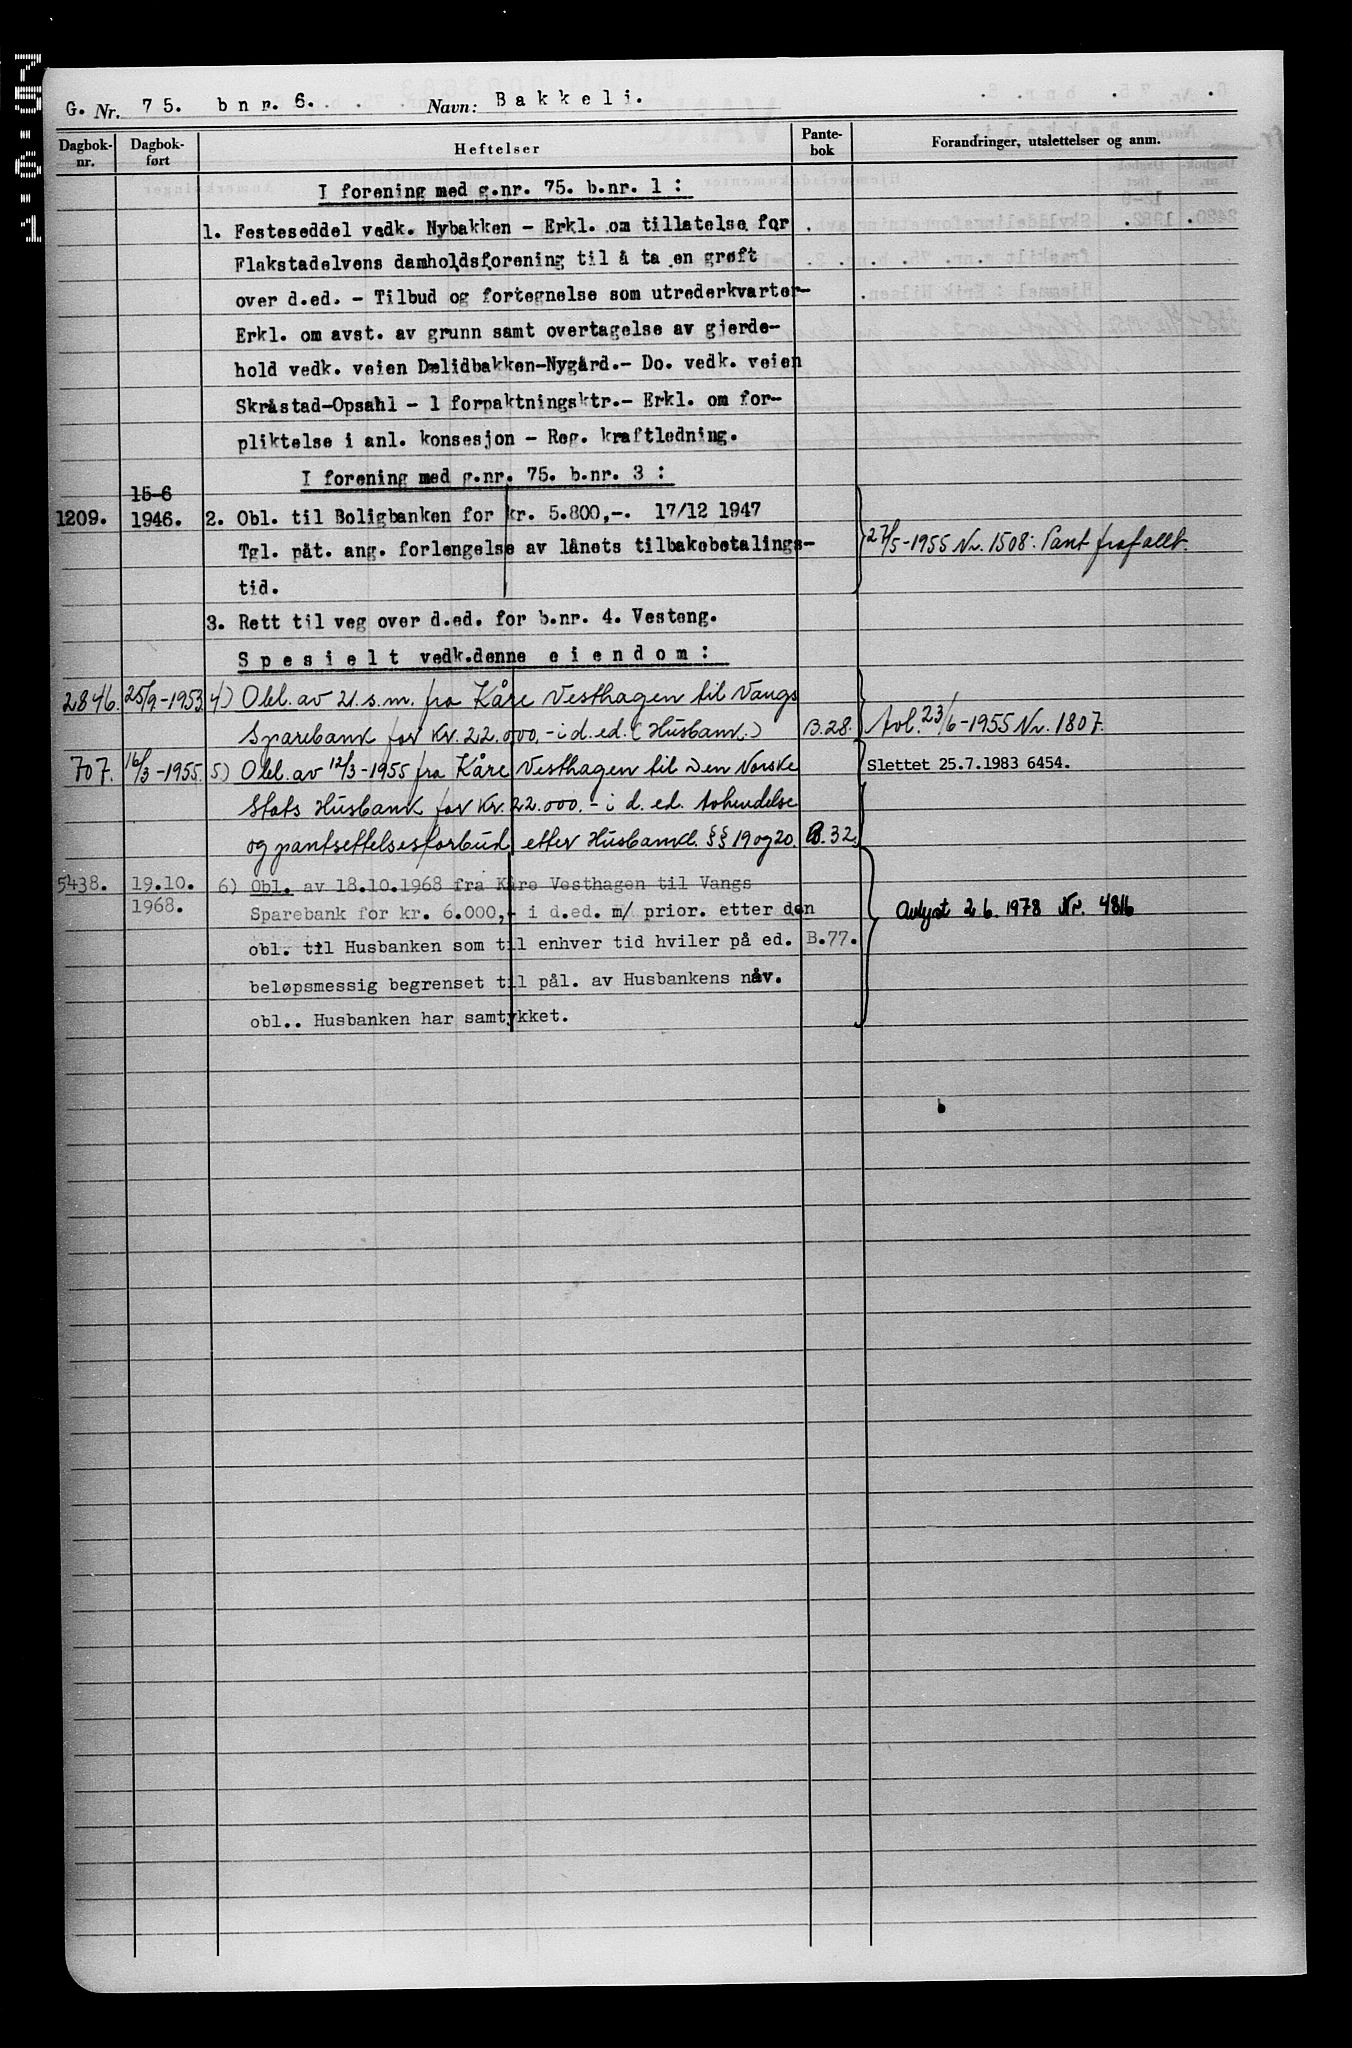 1·6·57
G. Nr. 75. bnr. 6. Navn: Bakkeli.
Dagbok-nr. Dagbok-ført Heftelser Pante-bok Forandringer, utslettelser og anm.
I forening med g.nr. 75. b.nr. 1 :
1. Festeseddel vedk. Nybakken - Erkl. om tillatelse for
Flakstadelvens damholdsforening til å ta en grøft
over d.ed. - Tilbud og fortegnelse som utrederkvarter-
Erkl. om avst. av grunn samt overtagelse av gjerde-
hold vedk. veien Dælidbakken-Nygård.- Do. vedk. veien
Skråstad-Opsahl - 1 forpaktningsktr.- Erkl. om for-
pliktelse i anl. konsesjon - Reg. kraftledning.
I forening med g.nr. 75. b.nr. 3 :
15-6
1209. 1946. 2. Obl. til Boligbanken for kr. 5.800,-. 17/12 1947
Tgl. påt. ang. forlengelse av lånets tilbakebetalings-
27/5-1955 Nr. 1508: Pant frafallt.
tid.
3. Rett til veg over d.ed. for b.nr. 4. Vesteng.
Spesielt vedk.denne eiendom:
2846. 25/9-1953 4) Obl. av 21.s.m. fra Kåre Vesthagen til Vangs
Sparebank for kr. 22.000,- i d.ed. (Husbank.) B.28. Avl. 23/6-1955 Nr. 1807.
707. 16/3-1955. 5) Obl. av 12/3-1955 fra Kåre Vesthagen til Den Norske
Slettet 25.7.1983 6454.
Stats Husbank for kr. 22.000.- i d. ed. Avhendelse
og pantsettelsesforbud etter Husbankl. §§ 19 og 20. B.32.
5438. 19.10. 6) Obl. av 18.10.1968 fra Kåre Vesthagen til Vangs
1968. Sparebank for kr. 6.000,- i d.ed. m/ prior. etter den
Avlyst 2 6. 1978 Nr. 4816
obl. til Husbanken som til enhver tid hviler på ed. B.77.
beløpsmessig begrenset til pål. av Husbankens nåv.
obl.. Husbanken har samtykket.